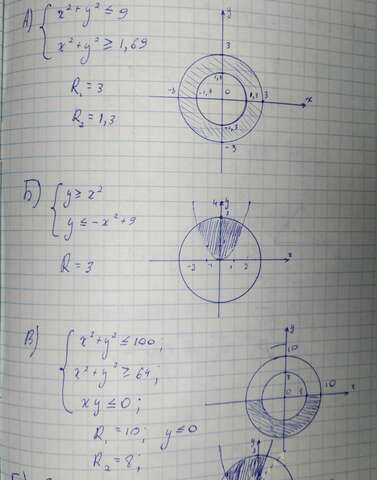 А) x² + y² ≤ 9
x² + y² ≥ 1,69
R₁ = 3
R₂ = 1,3
y
3
-3
0
3
x
-3
Б) y ≥ x²
y ≤ -x² + 9
R = 3
y
x
В) x² + y² ≤ 100;
x² + y² ≥ 64;
xy ≤ 0;
R₁ = 10; y ≤ 0
R₂ = 8;
y
10
0
10
x